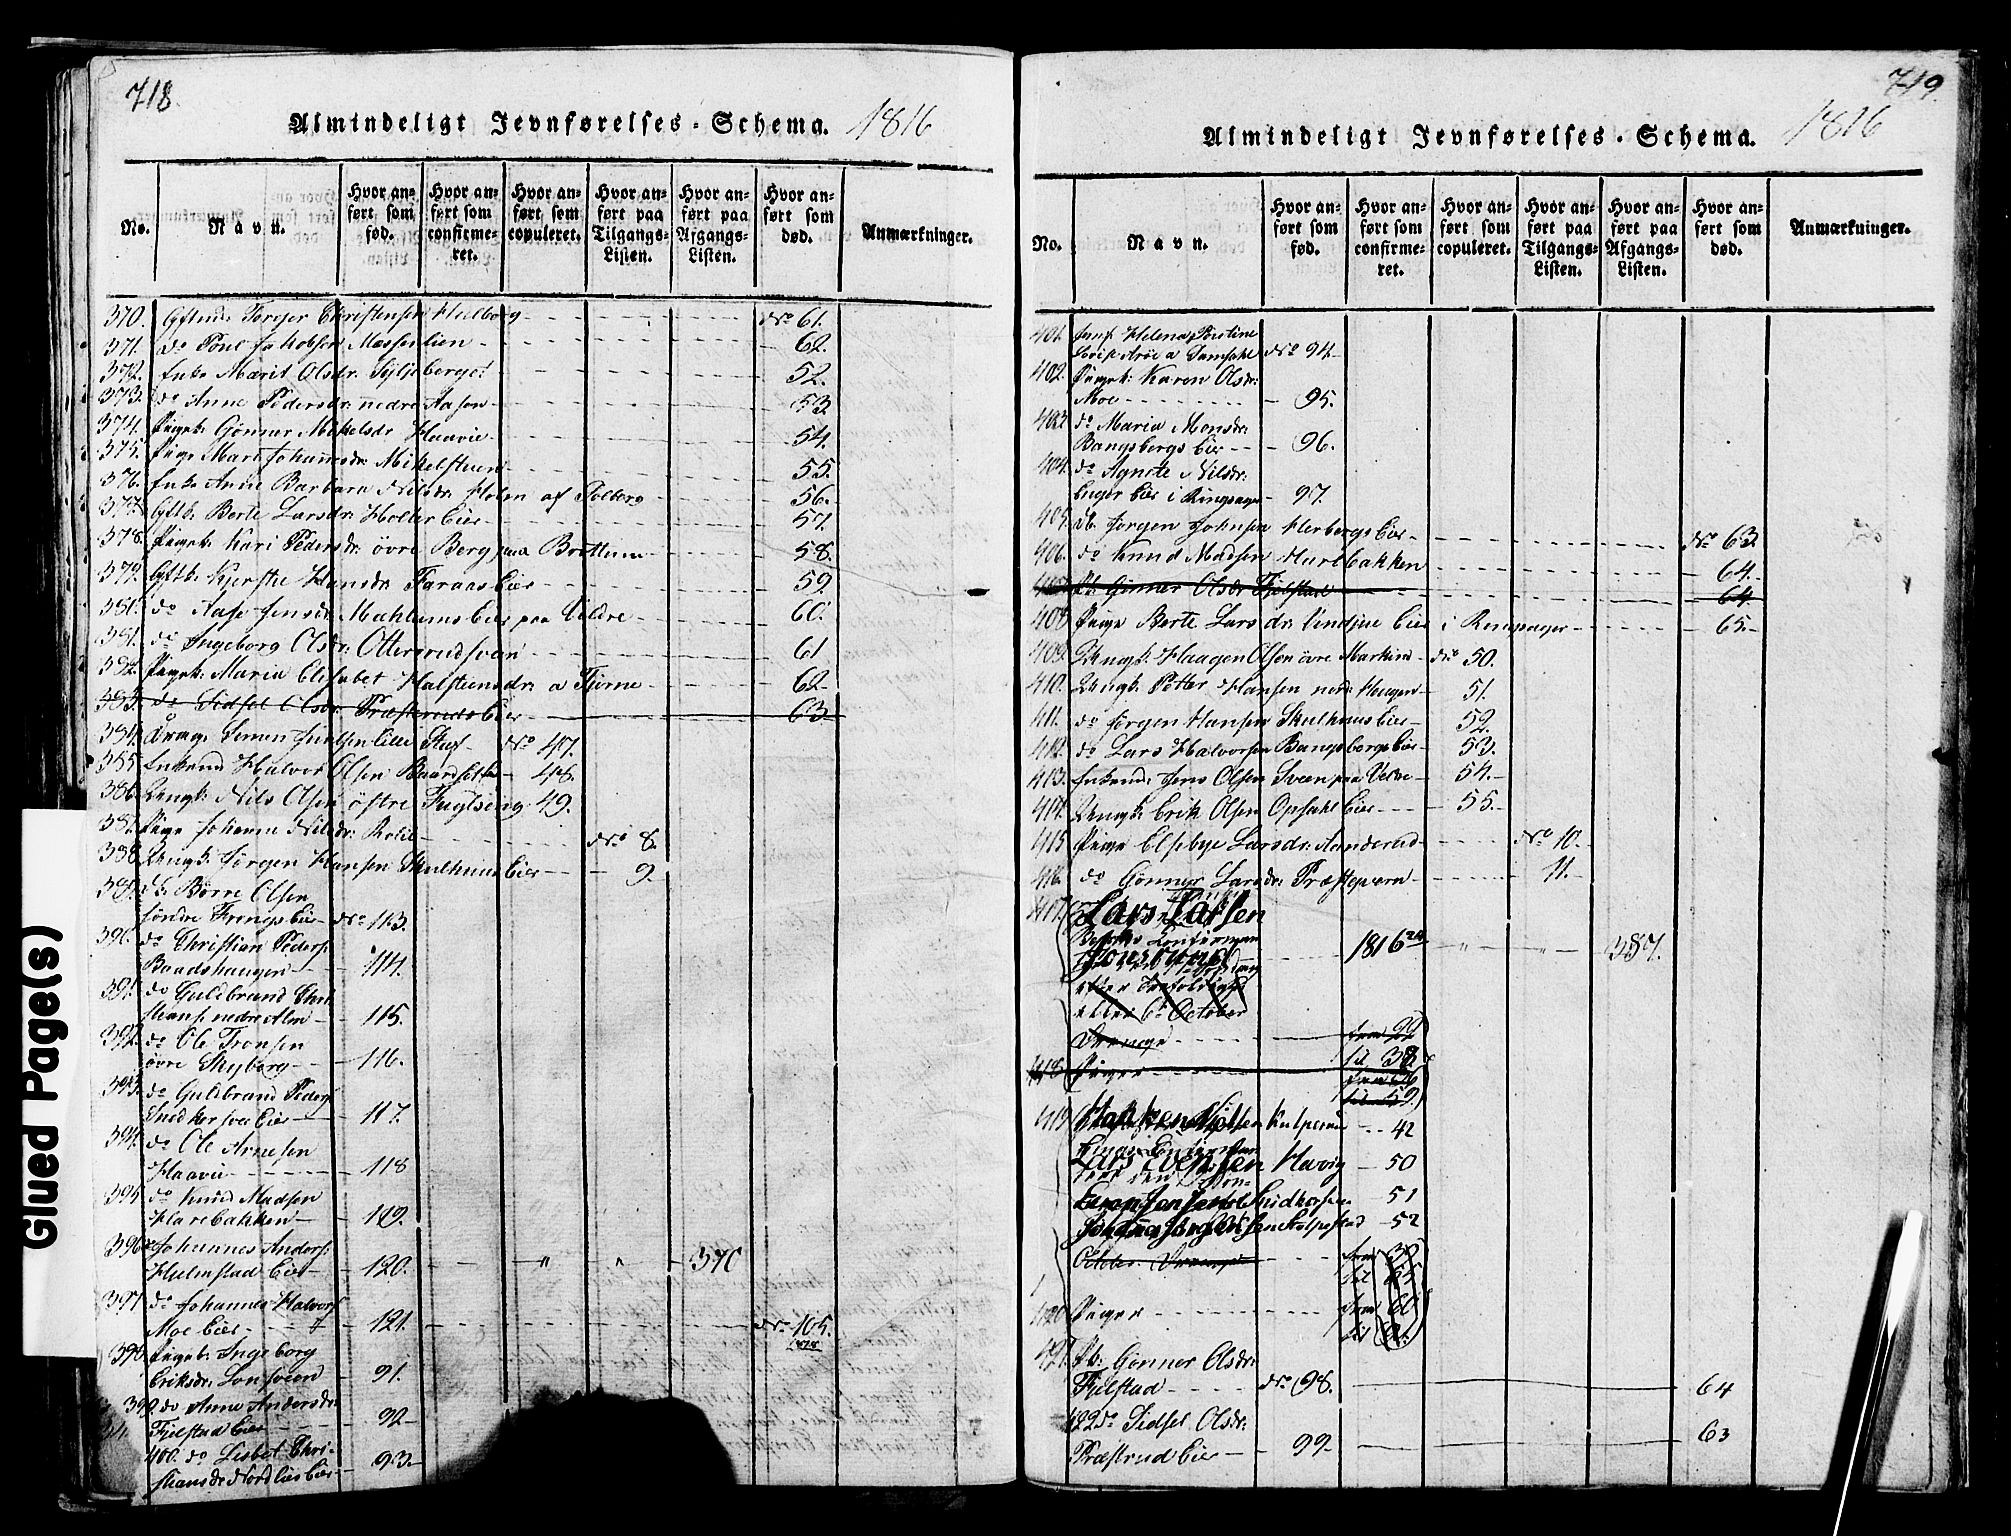 718.
Almindeligt Jevnførelses-Schema. 1816
No.
Navn.
Hvor anført som fød.
Hvor anført som confirmeret.
Hvor anført som copuleret.
Hvor anført paa Tilgangs-Listen.
Hvor anført paa Afgangs-Listen.
Hvor anført som død.
Anmærkninger.
370. Gftmd: Torger Christensen Helborg No. 61.
371. do Poul Jakobsen Messenlien 62.
372. Enke Marit Olsdr: Syljeberget 52.
373. do Anne Pedersdr: nedre Aasen 53.
374. Pigeb: Gönner Mikelsdr Haavie 54.
375. Pige Mari Johannesdr: Mikelstuen 55.
376. Enke Anne Barbara Nilsdr: Holm af Tolberg 56.
377. Gftk: Berte Larsdr: Holter Eier 57.
378. Pigeb: Kari Pedersdr: övre Berg paa Brøttum 58.
379. Gftk: Kjersti Hansdr: Faraas Eier 59.
380. do Aase Jensdr: Mæhlums Eier paa Veldre 60.
381. do Ingeborg Olsdr: Otterrudsvæn 61
382. Pigeb: Maria Elisabet Halstensdr: a Tjerne 62
383. do Sidsel Olsdr: Præsteruds Eier 63
384. Ungk: Simen Juulsen Lille Skef No 47.
385. Enkemd Halvor Olsen Baardseth 48.
386. Ungk: Nils Olsen östre Fuglseng 49.
387. Pige Johanne Nilsdr: Rolie No 8.
388. Ungk: Jörgen Hansen Skulhuus Eier 9.
389. db: Börre Olsen
söndre Frengs Eier No 113.
390. do Christian Peders:
Baadshaugen 114.
391. do Guldbrand Chri
stians: nedre Alm 115.
392. do Ole Tronsen
övre Skyberg 116.
393. do Guldbrand Peders
Snedkersvee Eier 117.
394. do Ole Arnesen
Haavie 118
395. do Knud Madsen
Harebakken 119.
396. Johannes Anders:
Helmstad Eier 120. " " 370
397. do Johannes Halvors
Moe Eier 121. No. 105.
398. Pigeb: Ingeborg
Eriksdr: Lonsveen 91.
399 do Anne Andersdr:
Fjelstad Eier 92
400. do Lisbet Chri-
stiansdr: Nordlies Eier 93.
719.
Almindeligt Jevnførelses-Schema. 1816
No.
Navn.
Hvor anført som fød.
Hvor anført som confirmeret.
Hvor anført som copuleret.
Hvor anført paa Tilgangs-Listen.
Hvor anført paa Afgangs-Listen.
Hvor anført som død.
Anmærkninger.
401. Helena
No 94.
402. Pigeb: Karen Olsdr:
Moe 95.
403 do Maria Monsdr:
Bangsbergs Eier 96.
404. do Agnete Nilsdr:
Enger Eier i Ringsager 97.
405. db. Jörgen Johnsen Herbergs Eier No 63.
406. do Knud Madsen Harebakken 64.
407. Pb. Gönner Olsdr: Fjelstad 64.
408 Pige Berte Larsdr: Eier i Ringsager 65.
409. Ungk: Haagen Olsen övre Markine No 50.
410. Ungk: Petter Hansen nedr: Haugen 51.
411. do Jörgen Hansen Skulhuus Eier 52.
412. do Lars Halvorsen Bangsbergs Eier 53.
413. Enkemd: Jens Olsen Sveen paa Veldre 54.
414. Ungk: Erik Olsen Opsahl Eier 55.
415 Pige Elsebye Larsdr: Aanderud No 10.
416. do Gönner Larsdr: Præstegaarn 11.
417. Lars Larsen
1816 " " 387.
eller 6te October
Drenge fra 22
til 38
418 Piger fra
til 59.
419 Haakon Nilsen 42
Lars Evensen Havig 50
51
52
Drenge fra
til
420 Piger fra 60
til
421 Pb: Gönner Olsdr:
Fjelstad No. 98. 64
422 do Sidsel Olsdr:
Præstrud Eier 99. 63
Glued Page(s)